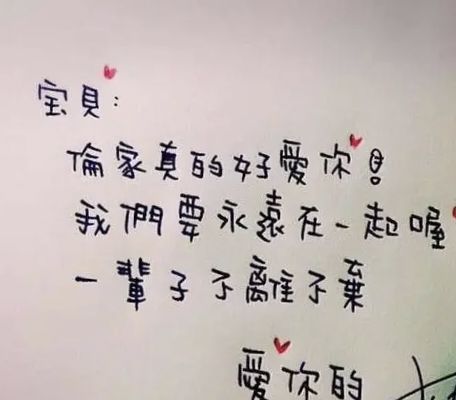 宝貝：
倫家真的好愛你！
我們要永遠在一起喔
一輩子不離不棄
愛你的